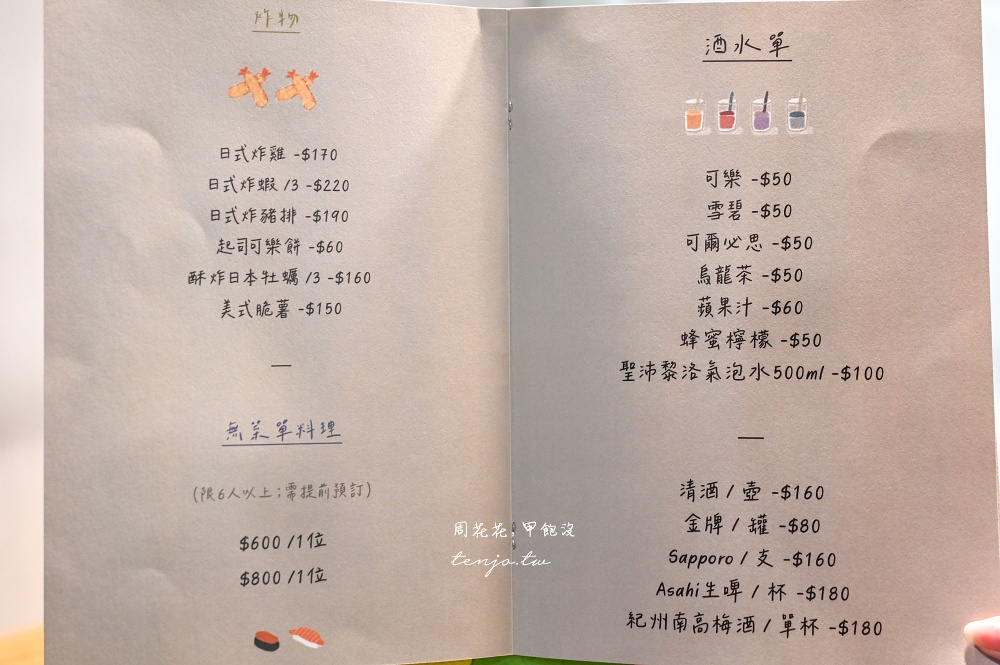 炸物
日式炸雞 -$170
日式炸蝦 /3 -$220
日式炸豬排 -$190
起司可樂餅 -$60
酥炸日本牡蠣 /3 -$160
美式脆薯 -$150
無菜單料理
(限6人以上;需提前預訂)
$600 /1位
$800 /1位
酒水單
可樂 -$50
雪碧 -$50
可爾必思 -$50
烏龍茶 -$50
蘋果汁 -$60
蜂蜜檸檬 -$50
聖沛黎洛氣泡水500ml -$100
清酒 / 壺 -$160
金牌 / 罐 -$80
Sapporo / 支 -$160
Asahi生啤 / 杯 -$180
紀州南高梅酒 / 單杯 -$180
周花花,甲飽沒
tenjo.tw